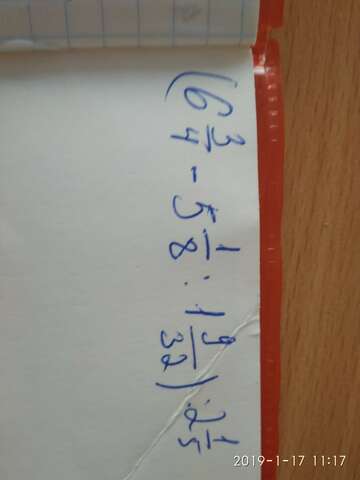 (6 3/4 - 5 1/8 : 1 9/32) 2 1/5
2019-1-17 11:17